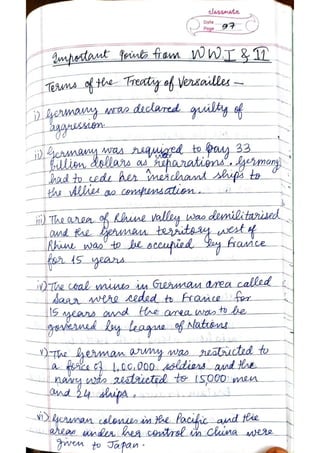 classmate
Date
Page 97
Important Points from W W. I & II
Terms of the Treaty of Versailles -
i) Germany was declared guilty of
aggression.
ii) Germany was required to pay 33
billion dollars as reparations. Germany
had to cede her merchant ships to
the Allies as compensation.
iii) The area of Rhine valley was demilitarised
and the German territory west of
Rhine was to be occupied by France
for 15 years
iv) The coal mines in German area called
Saar were ceded to France for
15 years and the area was to be
governed by League of Nations
v) The German army was restricted to
a force of 1,00,000 soldiers and the
navy was restricted to 15,000 men
and 24 ships.
vi) German colonies in the Pacific and the
areas under her control in China were
given to Japan.